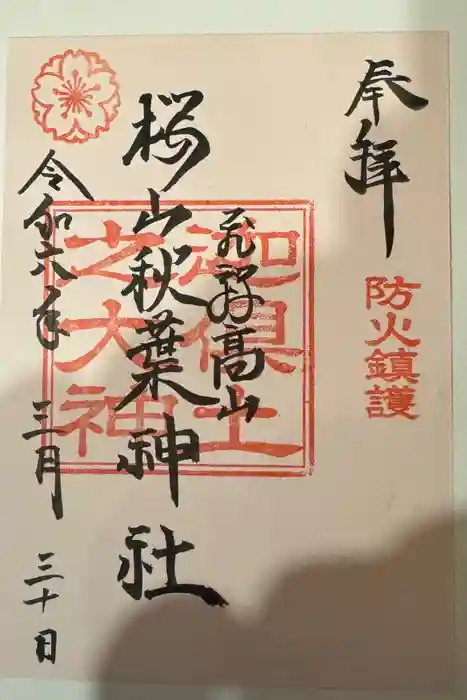 奉拝
防火鎮護
飛騨高山
迦倶土
之大神
桜山秋葉神社
令和六年 三月 三十日